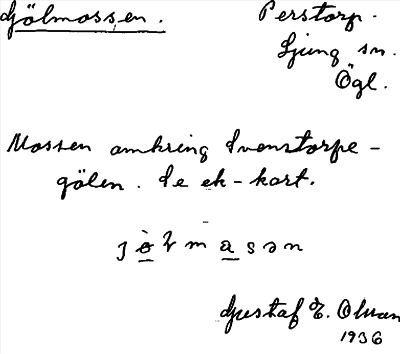 Gölmossen.
Perstorp.
Ljung sn.
Ögl.
Mossen omkring Svenstorpe-
gölen. Se ek-kart.
Gustaf E. Olsson
1936